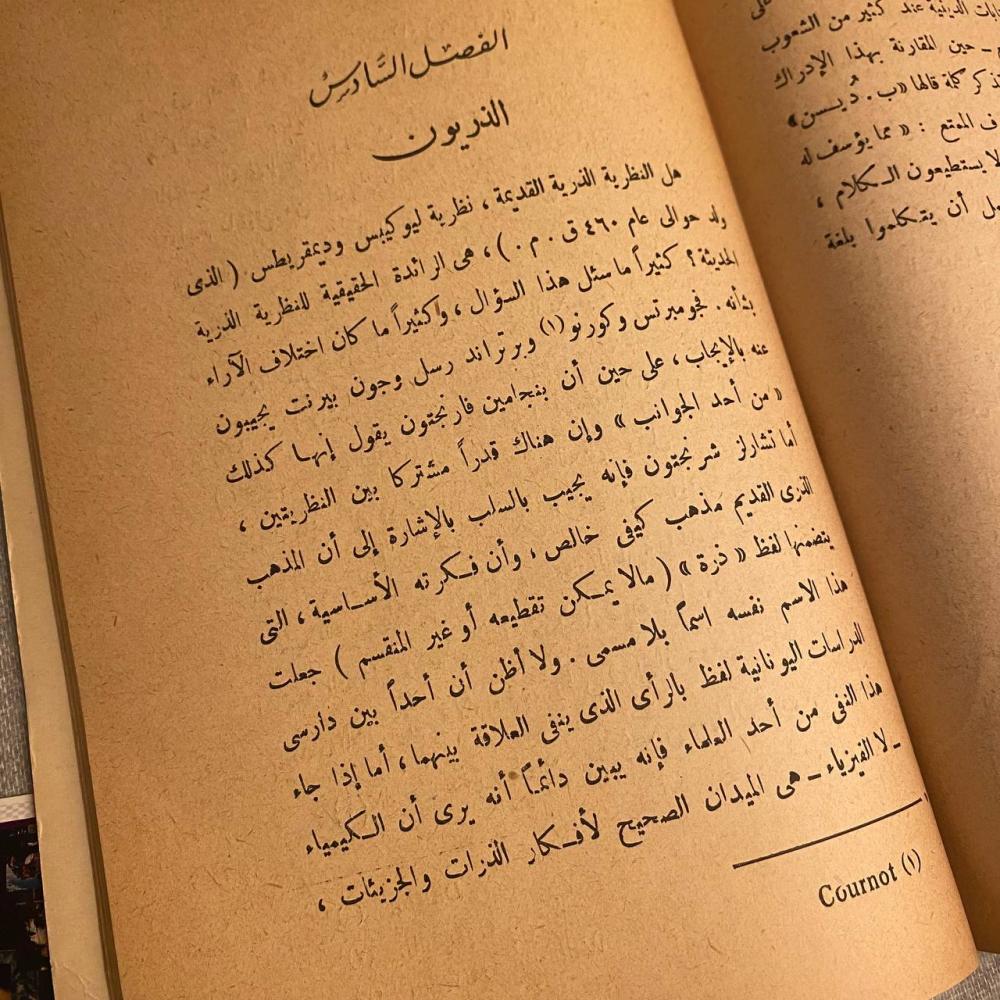 الفصل السَّادسُ
الذريون
هل النظرية الذرية القديمة ، نظرية ليوكيبس وديمقريطس ( الذى
ولد حوالى عام ٤٦٠ ق . م . ) ، هى الرائدة الحقيقية للنظرية الذرية
الحديثة ؟ كثيراً ما سئل هذا السؤال ، وكثيراً ما كان اختلاف الآراء
بشأنه . فجومبرتس وكورنو (١) وبرتراند رسل وجون بيرنت يجيبون
عنه بالإيجاب ، على حين أن بنجامين فارنجتون يقول إنها كذلك
« من أحد الجوانب » وإن هناك قدراً مشتركا بين النظريتين ،
أما تشارلز شرنجتون فإنه يجيب بالسلب بالإشارة إلى أن المذهب
الذرى القديم مذهب كيفى خالص ، وأن فكرته الأساسية ، التى
يتضمنها لفظ « ذرة » ( مالا يمكن تقطيعه أو غير المنقسم ) جعلت
هذا الاسم نفسه اسماً بلا مسمى . ولا أظن أن أحداً بين دارسى
الدراسات اليونانية لفظ بالرأى الذى ينفى العلاقة بينهما ، أما إذا جاء
هذا النفى من أحد العلماء فإنه يبين دائماً أنه يرى أن الكيمياء
ـ لا الفيزياء ـ هى الميدان الصحيح لأفكار الذرات والجزيئات ،
(١) Cournot
الدينية عند كثير من الشعوب
ـ حين المقارنة بهذا الإدراك
كلمة قالها « ب . دُيسن »
الممتع : « مما يؤسف له
لا يستطيعون الكلام ،
أن يتكلموا بلغة